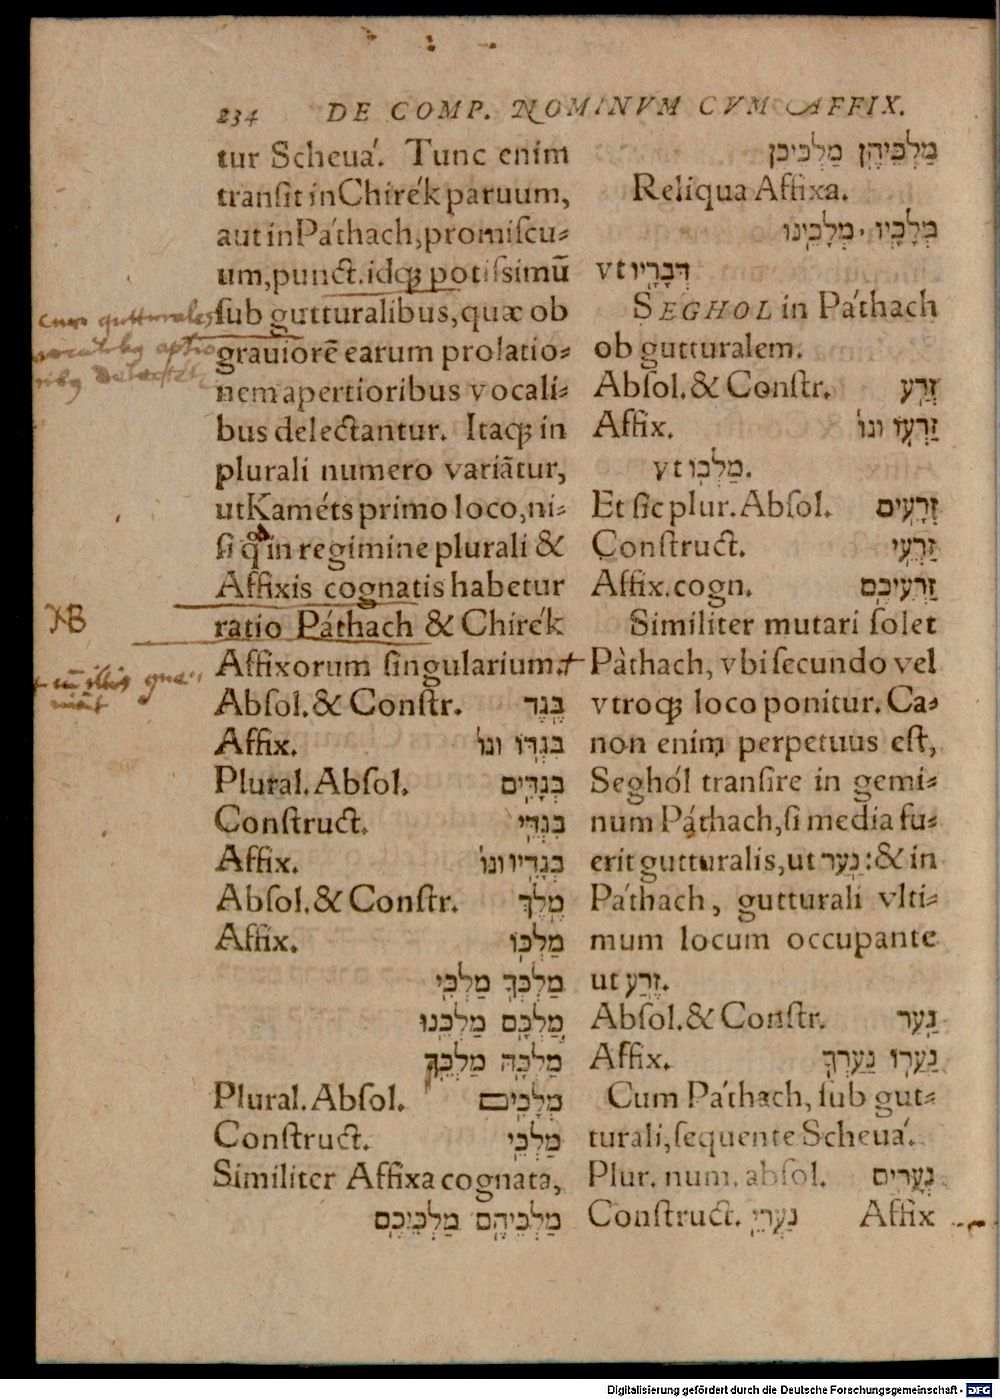 234 DE COMP. NOMINVM CVM AFFIX.
tur Scheuá. Tunc enim
tranſit in Chirék paruum,
aut in Páthach, promiſcu⸗
um, punct. idq́ potiſsimū
ſub gutturalibus, quæ ob
grauiorē earum prolatio⸗
nem apertioribus vocali⸗
bus delectantur. Itaq́ in
plurali numero variātur,
ut Kaméts primo loco, ni⸗
ſi q̊ in regimine plurali &
Affixis cognatis habetur
ratio Páthach & Chirék
Affixorum ſingularium.
Abſol. & Conſtr. בֶּגֶד
Affix. בִּגְדּוֹ וגו
Plural. Abſol. בְּגָדִים
Conſtruct. בִּגְדֵי
Affix. בְּגָדָיו וגו
Abſol. & Conſtr. מֶלֶךְ
Affix. מַלְכּוֹ
מַלְכְּךָ מַלְכִּי
מַלְכָּם מַלְכֵּנוּ
מַלְכָּהּ מַלְכֵּךְ
Plural. Abſol. מְלָכִים
Conſtruct. מַלְכֵי
Similiter Affixa cognata,
מַלְכֵיהֶם מַלְכֵיכֶם
מַלְכֵיהֶן מַלְכֵיכֶן
Reliqua Affixa.
מְלָכָיו. מְלָכֵינוּ
vt דְּבָרָיו
SEGHOL in Páthach
ob gutturalem.
Abſol. & Conſtr. זֶרַע
Affix. זַרְעוֹ וגו
vt מַלְכּוֹ.
Et ſic plur. Abſol. זְרָעִים
Conſtruct. זַרְעֵי
Affix. cogn. זַרְעֵיכֶם
Similiter mutari ſolet
Pàthach, vbi ſecundo vel
vtroq́ loco ponitur. Ca⸗
non enim perpetuus eſt,
Seghól tranſire in gemi⸗
num Páthach, ſi media fu⸗
erit gutturalis, ut נַעַר: & in
Páthach, gutturali vlti⸗
mum locum occupante
ut זֶרַע.
Abſol. & Conſtr. נַעַר
Affix. נַעַרְוֹ נַעַרְךָ
Cum Páthach, ſub gut⸗
turali, ſequente Scheuá.
Plur. num. abſol. נְעָרִים
Conſtruct. נַעֲרֵי Affix
cum gutturales
NB
Digitalisierung gefördert durch die Deutsche Forschungsgemeinschaft - DFG